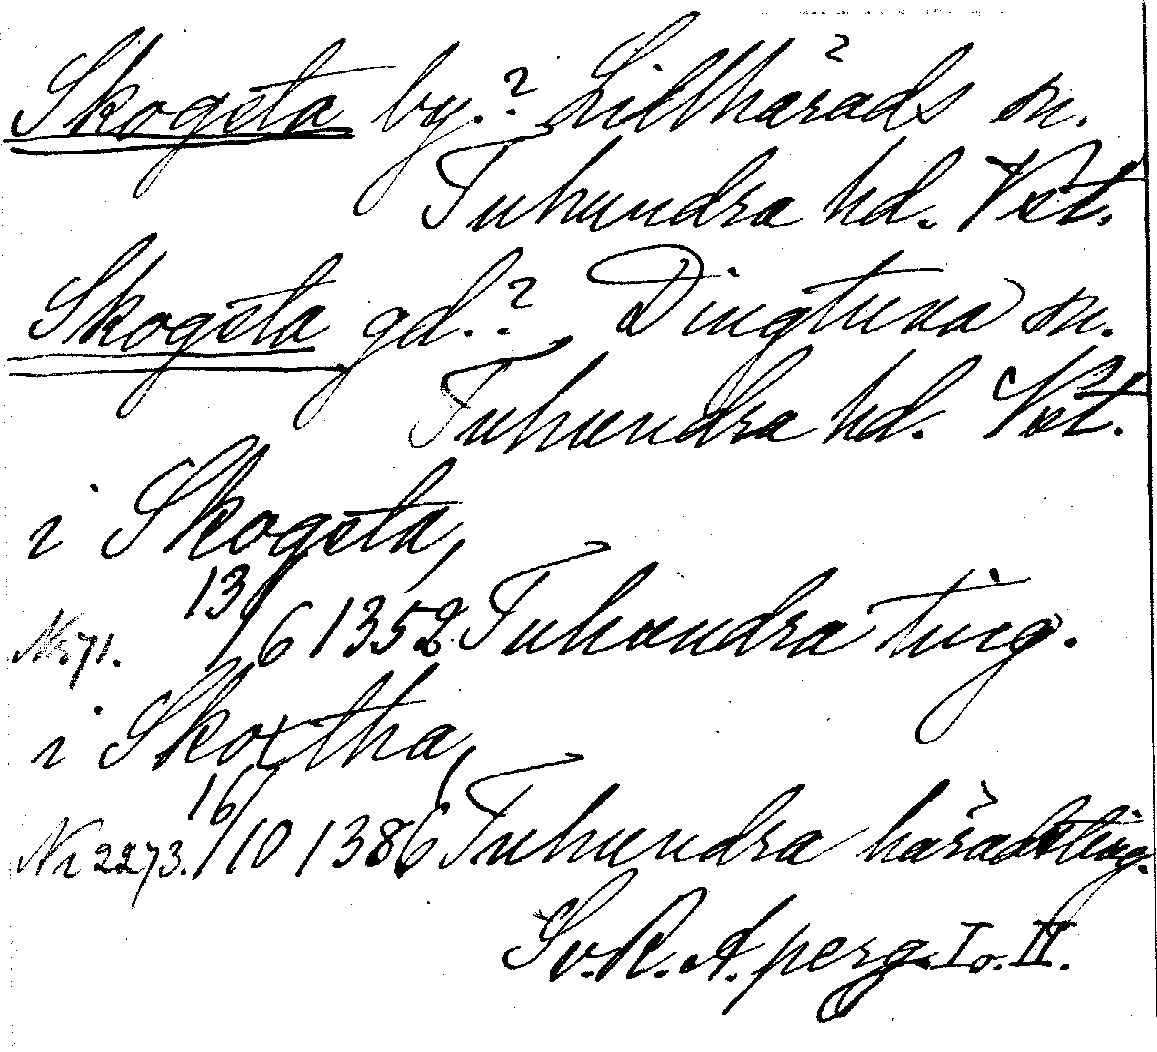 Skogsta by.? Lillhärads sn.
Tuhundra hd. Vst.
Skogsta gd.? Dingtuna sn.
Tuhundra hd. Vst.
i Skogsta,
Nr 71. 13/6 1352 Tuhundra ting.
i Skoxtha,
Nr 2273. 16/10 1386 Tuhundra häradsting.
Sv. R. A. perg. I o. II.